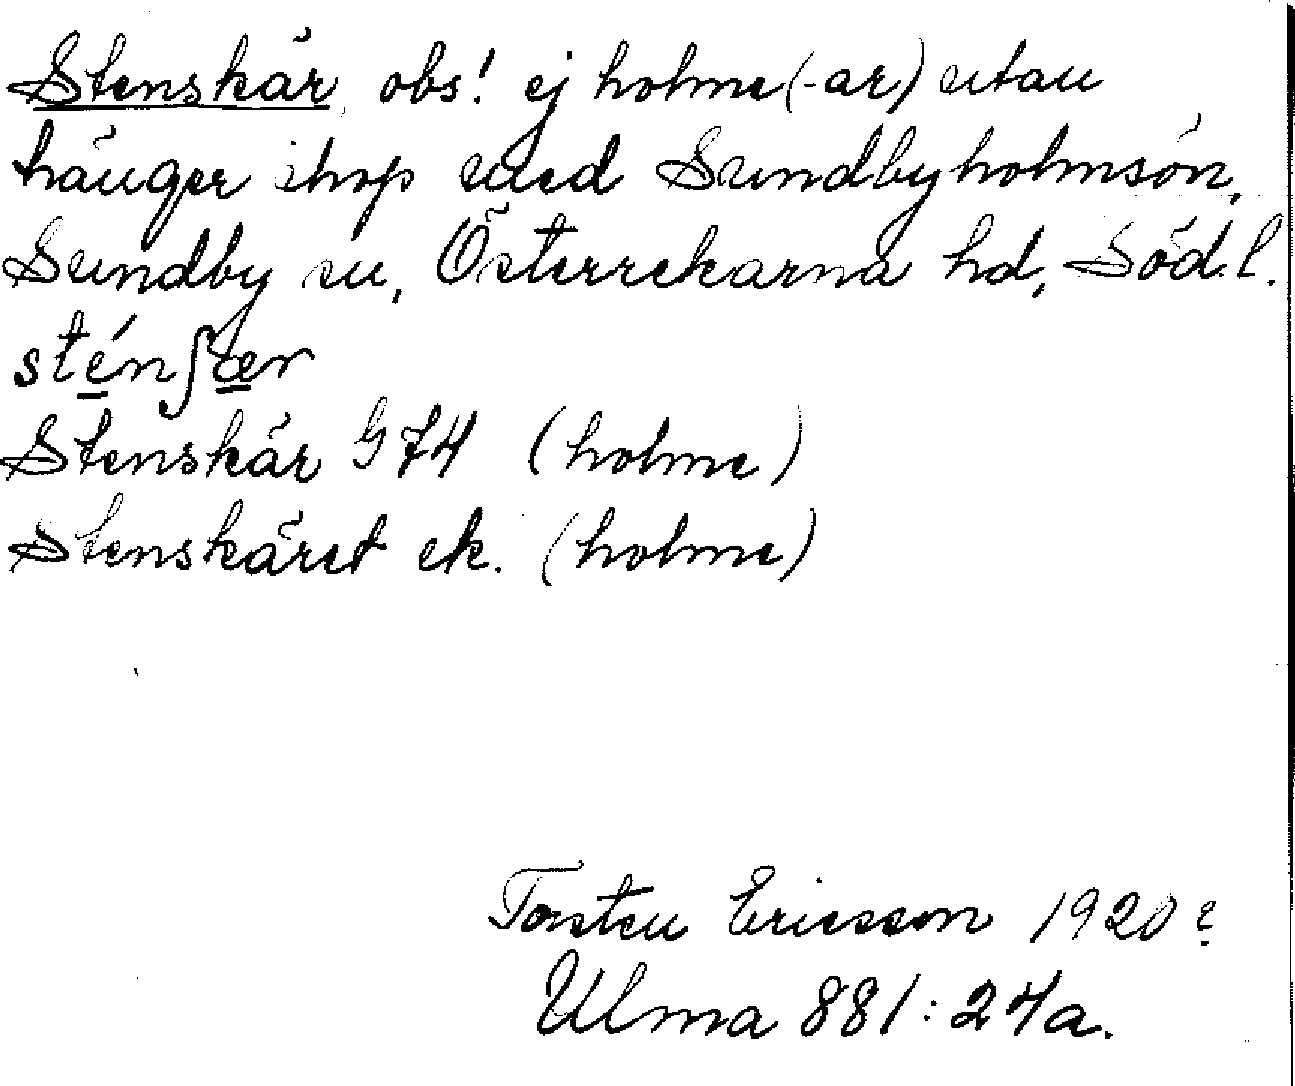 Stenskär obs! ej holme(-ar) utan
hänger ihop med Sundbyholmsön,
Sundby sn, Österrekarna hd, Södl.
sténʃær
Stenskär G 74 (holme)
Stenskäret ek. (holme)
Torsten Ericsson 1920?
Ulma 881:24a.